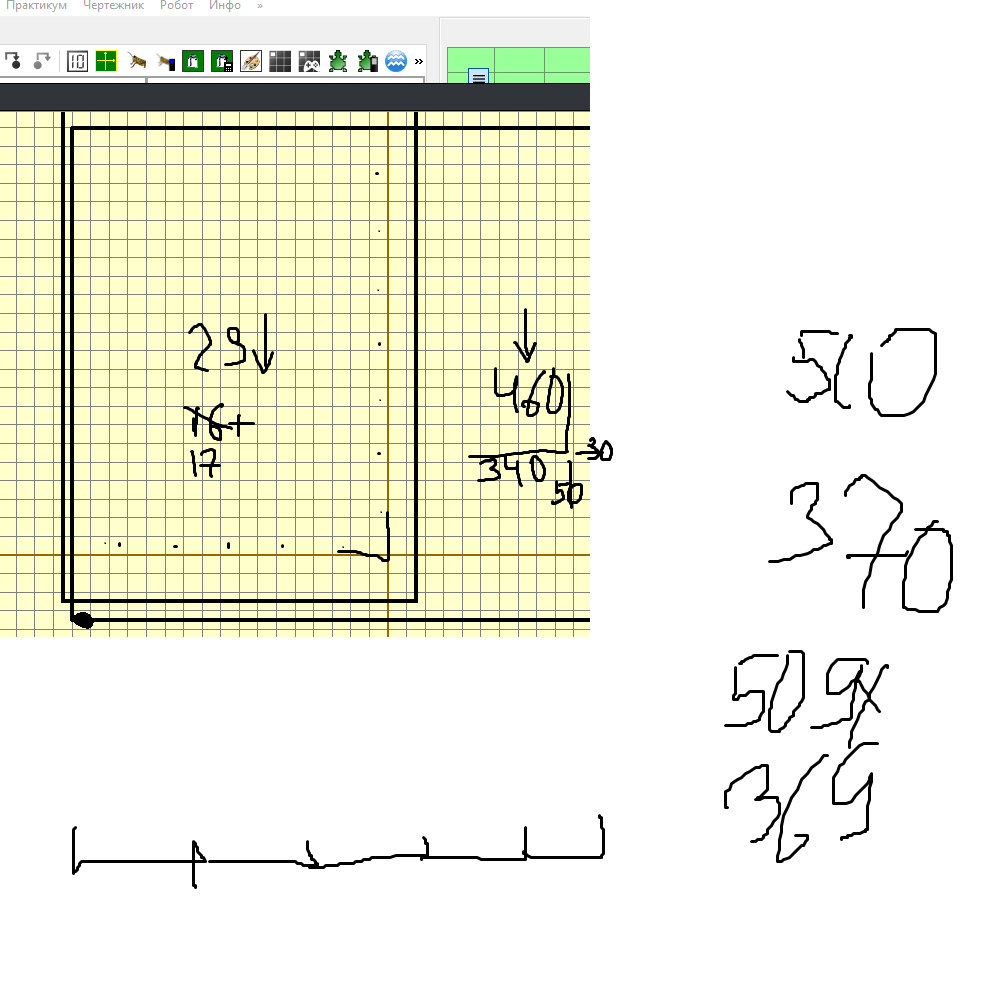 Практикум Чертежник Робот Инфо »
10 »
29
16+
17
460
340 30
50
510
370
509x
369